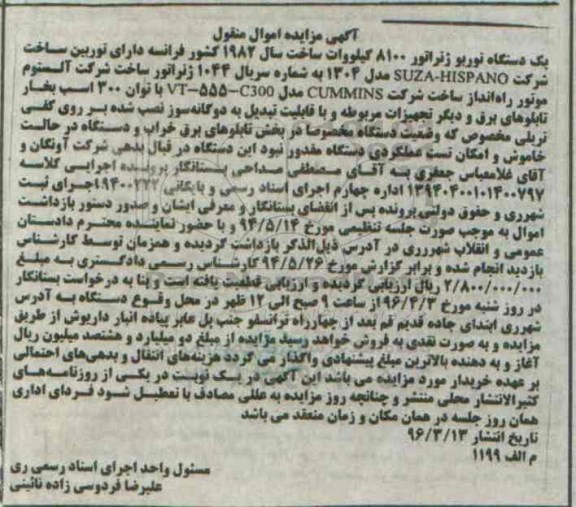 آگهی مزایده اموال منقول
یک دستگاه توربو ژنراتور ۸۱۰۰ کیلووات ساخت سال ۱۹۸۲ کشور فرانسه دارای توربین ساخت
شرکت SUZA-HISPANO مدل ۱۳۰۴ به شماره سریال ۱۰۴۴ ژنراتور ساخت شرکت آلستوم
موتور راه‌انداز ساخت شرکت CUMMINS مدل VT-۵۵۵-C300 با توان ۳۰۰ اسب بخار
تابلوهای برق و دیگر تجهیزات مربوطه و با قابلیت تبدیل به دوگانه‌سوز نصب شده بر روی کفی
تریلی مخصوص که وضعیت دستگاه مخصوصا در بخش تابلوهای برق خراب و دستگاه در حالت
خاموش و امکان تست عملکردی دستگاه مقدور نبود این دستگاه در قبال بدهی شرکت آونگان و
آقای غلامعباس جعفری به آقای مصطفی صداحی بستانکار پرونده اجرایی کلاسه
۱۳۹۴۰۴۰۰۱۰۱۴۰۰۷۹۷ اداره چهارم اجرای اسناد رسمی و بایگانی ۹۴۰۰۲۲۲ اجرای ثبت
شهرری و حقوق دولتی پرونده پس از انقضای بستانکار و معرفی ایشان و صدور دستور بازداشت
اموال به موجب صورت جلسه تنظیمی مورخ ۹۴/۵/۱۴ و با حضور نماینده محترم دادستان
عمومی و انقلاب شهرری در آدرس ذیل‌الذکر بازداشت گردیده و همزمان توسط کارشناس
بازدید انجام شده و برابر گزارش مورخ ۹۴/۵/۲۶ کارشناس رسمی دادگستری به مبلغ
۲/۸۰۰/۰۰۰/۰۰۰ ریال ارزیابی گردیده و ارزیابی قطعیت یافته است و بنا به درخواست بستانکار
در روز شنبه مورخ ۹۶/۴/۳ از ساعت ۹ صبح الی ۱۲ ظهر در محل وقوع دستگاه به آدرس
شهرری ابتدای جاده قدیم قم بعد از چهارراه ترانسفو جنب پل عابر پیاده انبار داریوش از طریق
مزایده و به صورت نقدی به فروش خواهد رسید مزایده از مبلغ دو میلیارد و هشتصد میلیون ریال
آغاز و به دهنده بالاترین مبلغ پیشنهادی واگذار می گردد هزینه‌های انتقال و بدهی‌های احتمالی
بر عهده خریدار مورد مزایده می باشد این آگهی در یک نوبت در یکی از روزنامه‌های
کثیرالانتشار محلی منتشر و چنانچه روز مزایده به عللی مصادف با تعطیل شود فردای اداری
همان روز جلسه در همان مکان و زمان منعقد می باشد
تاریخ انتشار ۹۶/۳/۱۳
م الف ۱۱۹۹
مسئول واحد اجرای اسناد رسمی ری
علیرضا فردوسی زاده نائینی